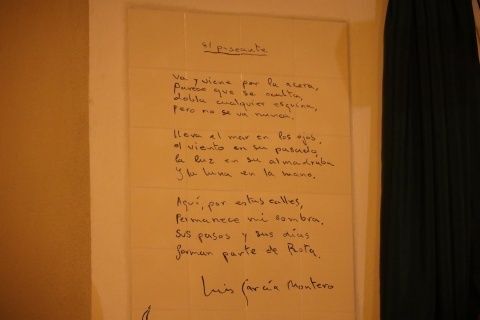 El paseante
Va y viene por la acera,
Parece que se oculta,
dobla cualquier esquina,
pero no se va nunca.
Lleva el mar en los ojos,
el viento en su pasado,
la luz en su almadraba
y la luna en la mano.
Aquí, por estas calles,
Permanece mi sombra.
Sus pasos y sus días
forman parte de Rota.
Luis García Montero